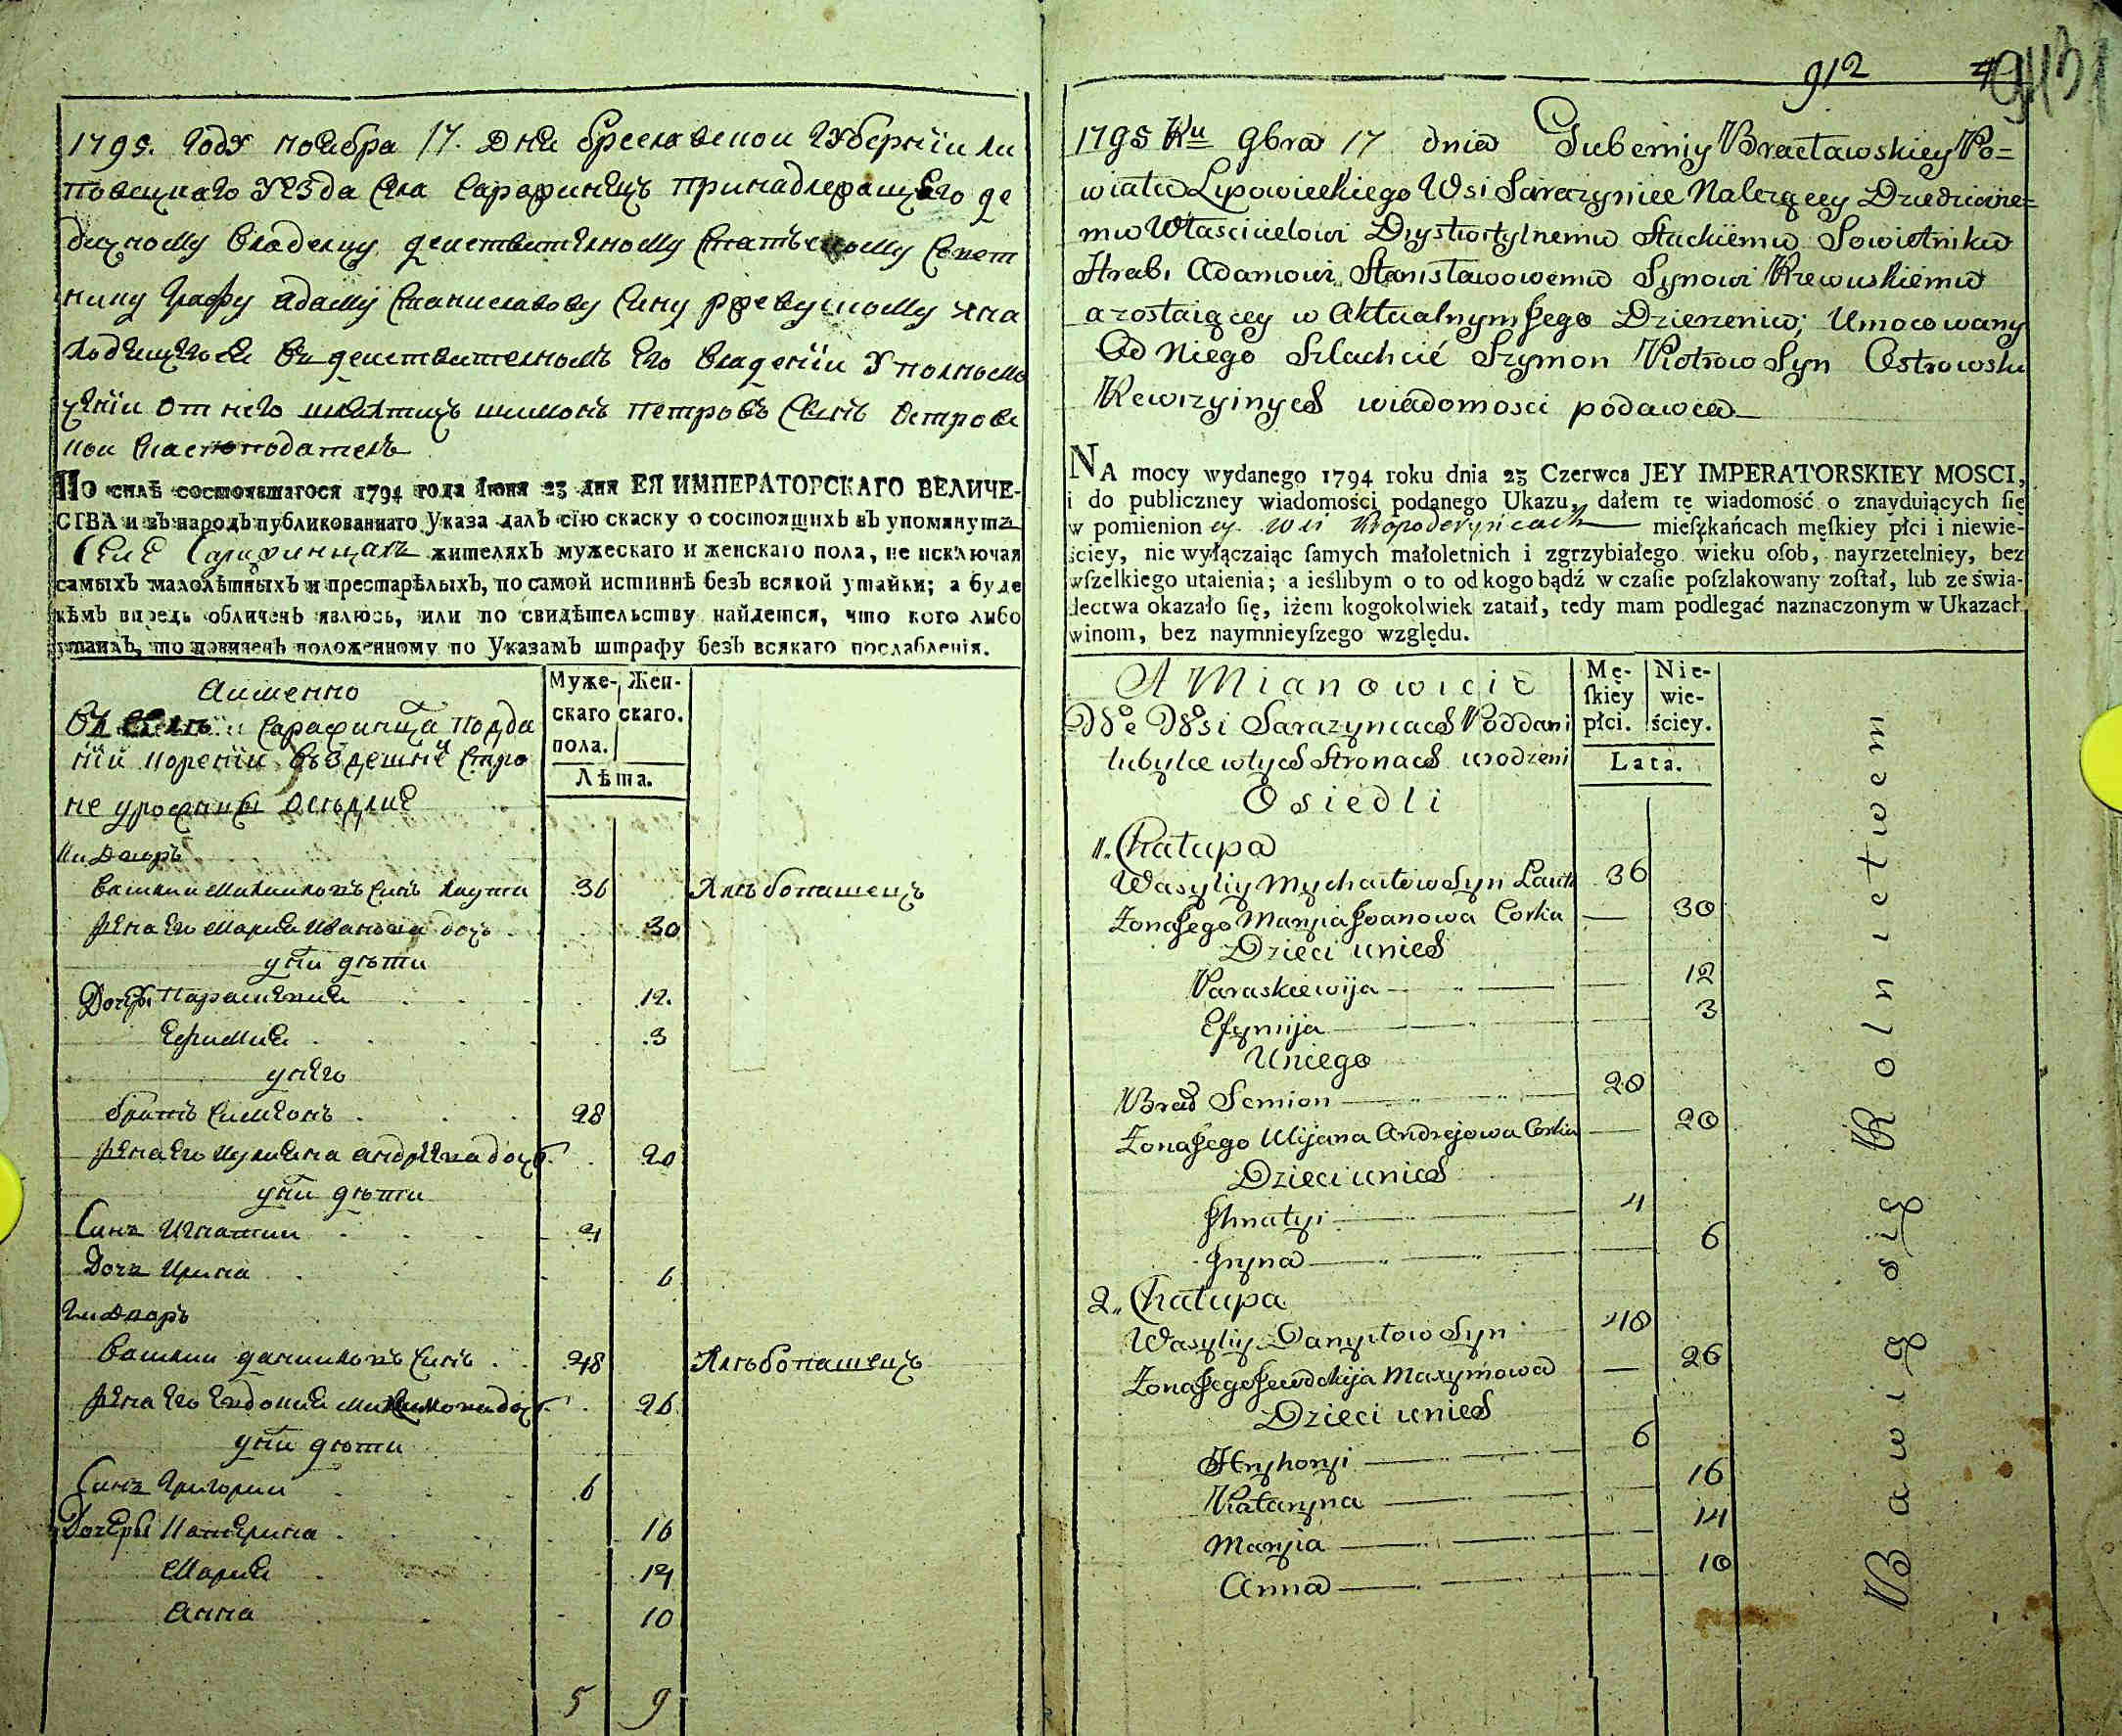 1795. Году ноября 17. Дня Бреславской Губернии Ли
повецкаго уезда села Саражинецъ принадлежащего де
дичному владелцу действителному Статьскому Совет
нику Графу Адаму Станиславову Сину Ржевускому яна
ходящегося въ действителномъ его владении Уполномо
чении от него шляхтичъ шимонъ Петровъ Синъ Островс
кои
По силѣ состоявшагося 1794 года Июня 23 дня ЕЯ ИМПЕРАТОРСКАГО ВЕЛИЧЕ-
СТВА и въ народъ публикованнаго Указа далъ сїю скаску о состоящихъ въ упомянутъ
Селе Саражинцахъ жителяхъ мужескаго и женскаго пола, не исключая
самыхъ малолѣтныхъ и престарѣлыхъ, по самой истиннѣ безъ всякой утайки; а буде
кѣмъ впредь обличенъ явлюсь, или по свидѣтельству найдется, что кого либо
утаилъ, то повиненъ положенному по Указамъ штрафу безъ всякаго послабленїя.
Аименно
Въ Саражинца Подда
нии корении въздешне Сторо
не урожении оседлие
Муже- Жен-
скаго скаго.
пола.
Лѣта.
Дворъ
Василии Михаиловъ Синъ Лаута 36 Хлебопашецъ
Жена его Мария Иванова дочь 30
унїи дети
Дочеры Параскевия 12.
Ефимия 3
унего
братъ Симеонъ 28
Жена его Иулияна андреева дочь 20
унїи дети
Синъ Игнатии 4
Дочъ Ирина 6
Дворъ
Василии даниловъ Синъ 48 Хлебопашецъ
Жена его Евдокия Максимова дочь 26
унїи дети
Синъ Григории 6
Дочеры Катерина 16
Мария 14
Анна 10
5 9
912
1795 Ku 9bra 17 dnia Guberniy Bracławskiey Po=
wiatu Lipowieckiego Wsi Sarazyniec Nalezącey Dziedziczne=
mu Własicielowi Dystwitylnemu Stackiemu Sowietniku
Hrabi Adamowi Stanisławowemu Synowi Rzewuskiemu
a zostaiącey w Aktualnym Jego Dzierzeniu; Umocowany
Od Niego Szlachcić Szymon Piotrow Syn Ostrowski
Rewizyinych wiadomosci podawca
NA mocy wydanego 1794 roku dnia 23 Czerwca JEY IMPERATORSKIEY MOSCI,
i do publiczney wiadomości podanego Ukazu, dałem tę wiadomość o znayduiących się
w pomienion ey. Wsi Kopoderyńcach mieſzkańcach męſkiey płci i niewie-
ściey, nie wyłączaiąc ſamych małoletnich i zgrzybiałego wieku oſob, nayrzetelniey, bez
wſzelkiego utaienia; a ieślibym o to od kogo bądź w czaſie poſzlakowany zoſtał, lub ze świa-
dectwa okazało ſię, iżem kogokolwiek zataił, tedy mam podlegać naznaczonym w Ukazach
winom, bez naymnieyſzego względu.
A Mianowicie
We Wsi Sarazyncach Poddani
lubylce wtych Stronach urodzeni
Osiedli
Mę- Nie-
ſkiey wie-
płci. ściey.
Lata.
1. Chałupa
Wasyliy Mychaiłow Syn Laut 36
Zona Jego Maryia Jwanowa Corka 30
Dzieci unich
Paraskiewija 12
Efymija 3
Uniego
Brad Semion 28
Zona Jego Ulijana Andrejowa Corka 20
Dzieci unich
Jhnatyi 4
Jryna 6
2. Chałupa
Wasyliy Danyłow Syn 48
Zona Jego Jewdokija Maxymowa 26
Dzieci unich
Hryhoryi 6
Kataryna 16
Maryia 14
Anna 10
Bawią się Rolnictwem